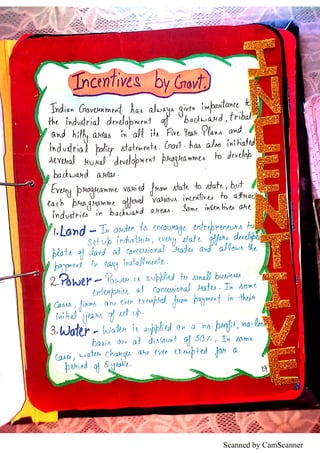 Incentives by Govt.
Indian Government has always given importance to
the industrial development of backward, tribal
and hilly areas in all its Five Year Plans and
industrial policy statements. Govt. has also initiated
several rural development programmes to develop
backward areas.
Every programme varied from state to state, but
each programme offered various incentives to attract
industries in backward areas. Some incentives are
1. Land - In order to encourage entrepreneurs to
set up industries, every state offers develop
plots of land at concessional rates and allows the
payment in easy installments.
2. Power - Power is supplied to small business
enterprises at concessional rates. In some
cases, firms are even exempted from payment in their
initial years of set up.
3. Water - Water is supplied on a no-profit, no-loss
basis or at discount of 50%. In some
cases, water charges are even exempted for a
period of 5 years.
INCENTIVE
Scanned by CamScanner